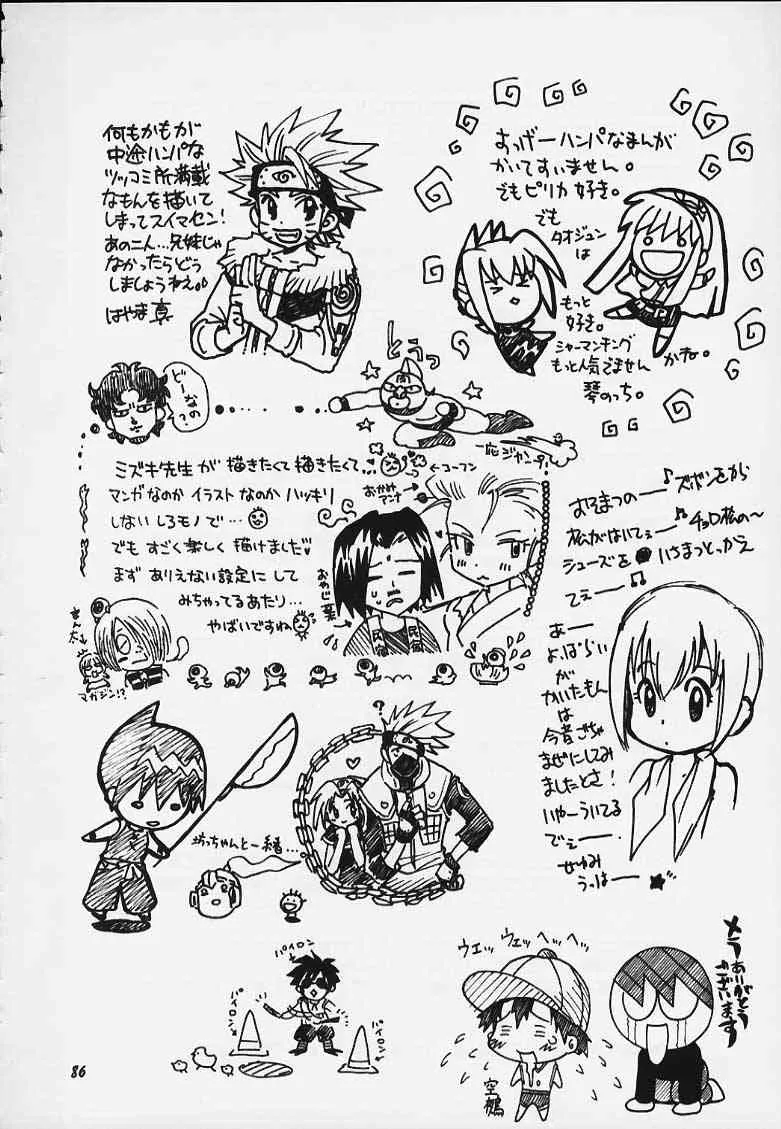 何もかもが
中途ハンパな
ツッコミ所満載
なもんを描いて
しまってスイマセン!
あの二人…兄妹じゃ
なかったらどう
しましょうねぇ。
はやま 真
すっげーハンパなまんが
かいてすいません。
でもピリカ好き。
でも
タオジュン
は
もっと
好き。
シャーマンキング
もっと人気でません
かね。
琴のっち。
どーなの?
とうっ
一応ジャンプ!
ミズキ先生が 描きたくて描きたくて…
←コーフン
マンガなのか イラストなのか ハッキリ
しない しろモノで…
でも すごく楽しく 描けました♥
まず ありえない設定にして
みちゃってるあたり…
やばいですね
おかみ
アンナ
おやじ
葉
民宿
民宿
マガジン!?
おそまつの――♪ ズボンをから
松がはいてぇ――♪ チョロ松の〜
シューズを いちまつとっかえ
てぇ――♫
あー
よっぱらい
が
かいたもん
は
今昔ごちゃ
まぜにしてみ
ましたとさ!
いゆーういてる
でぇ――.
せゆみ
うっはー★
?
坊っちゃんと一緒…
パイロン
パイロン
パイロン
ウェッ ウェッ ヘッ ヘッ
空鶴
メラ
ありがとう
ございます
86